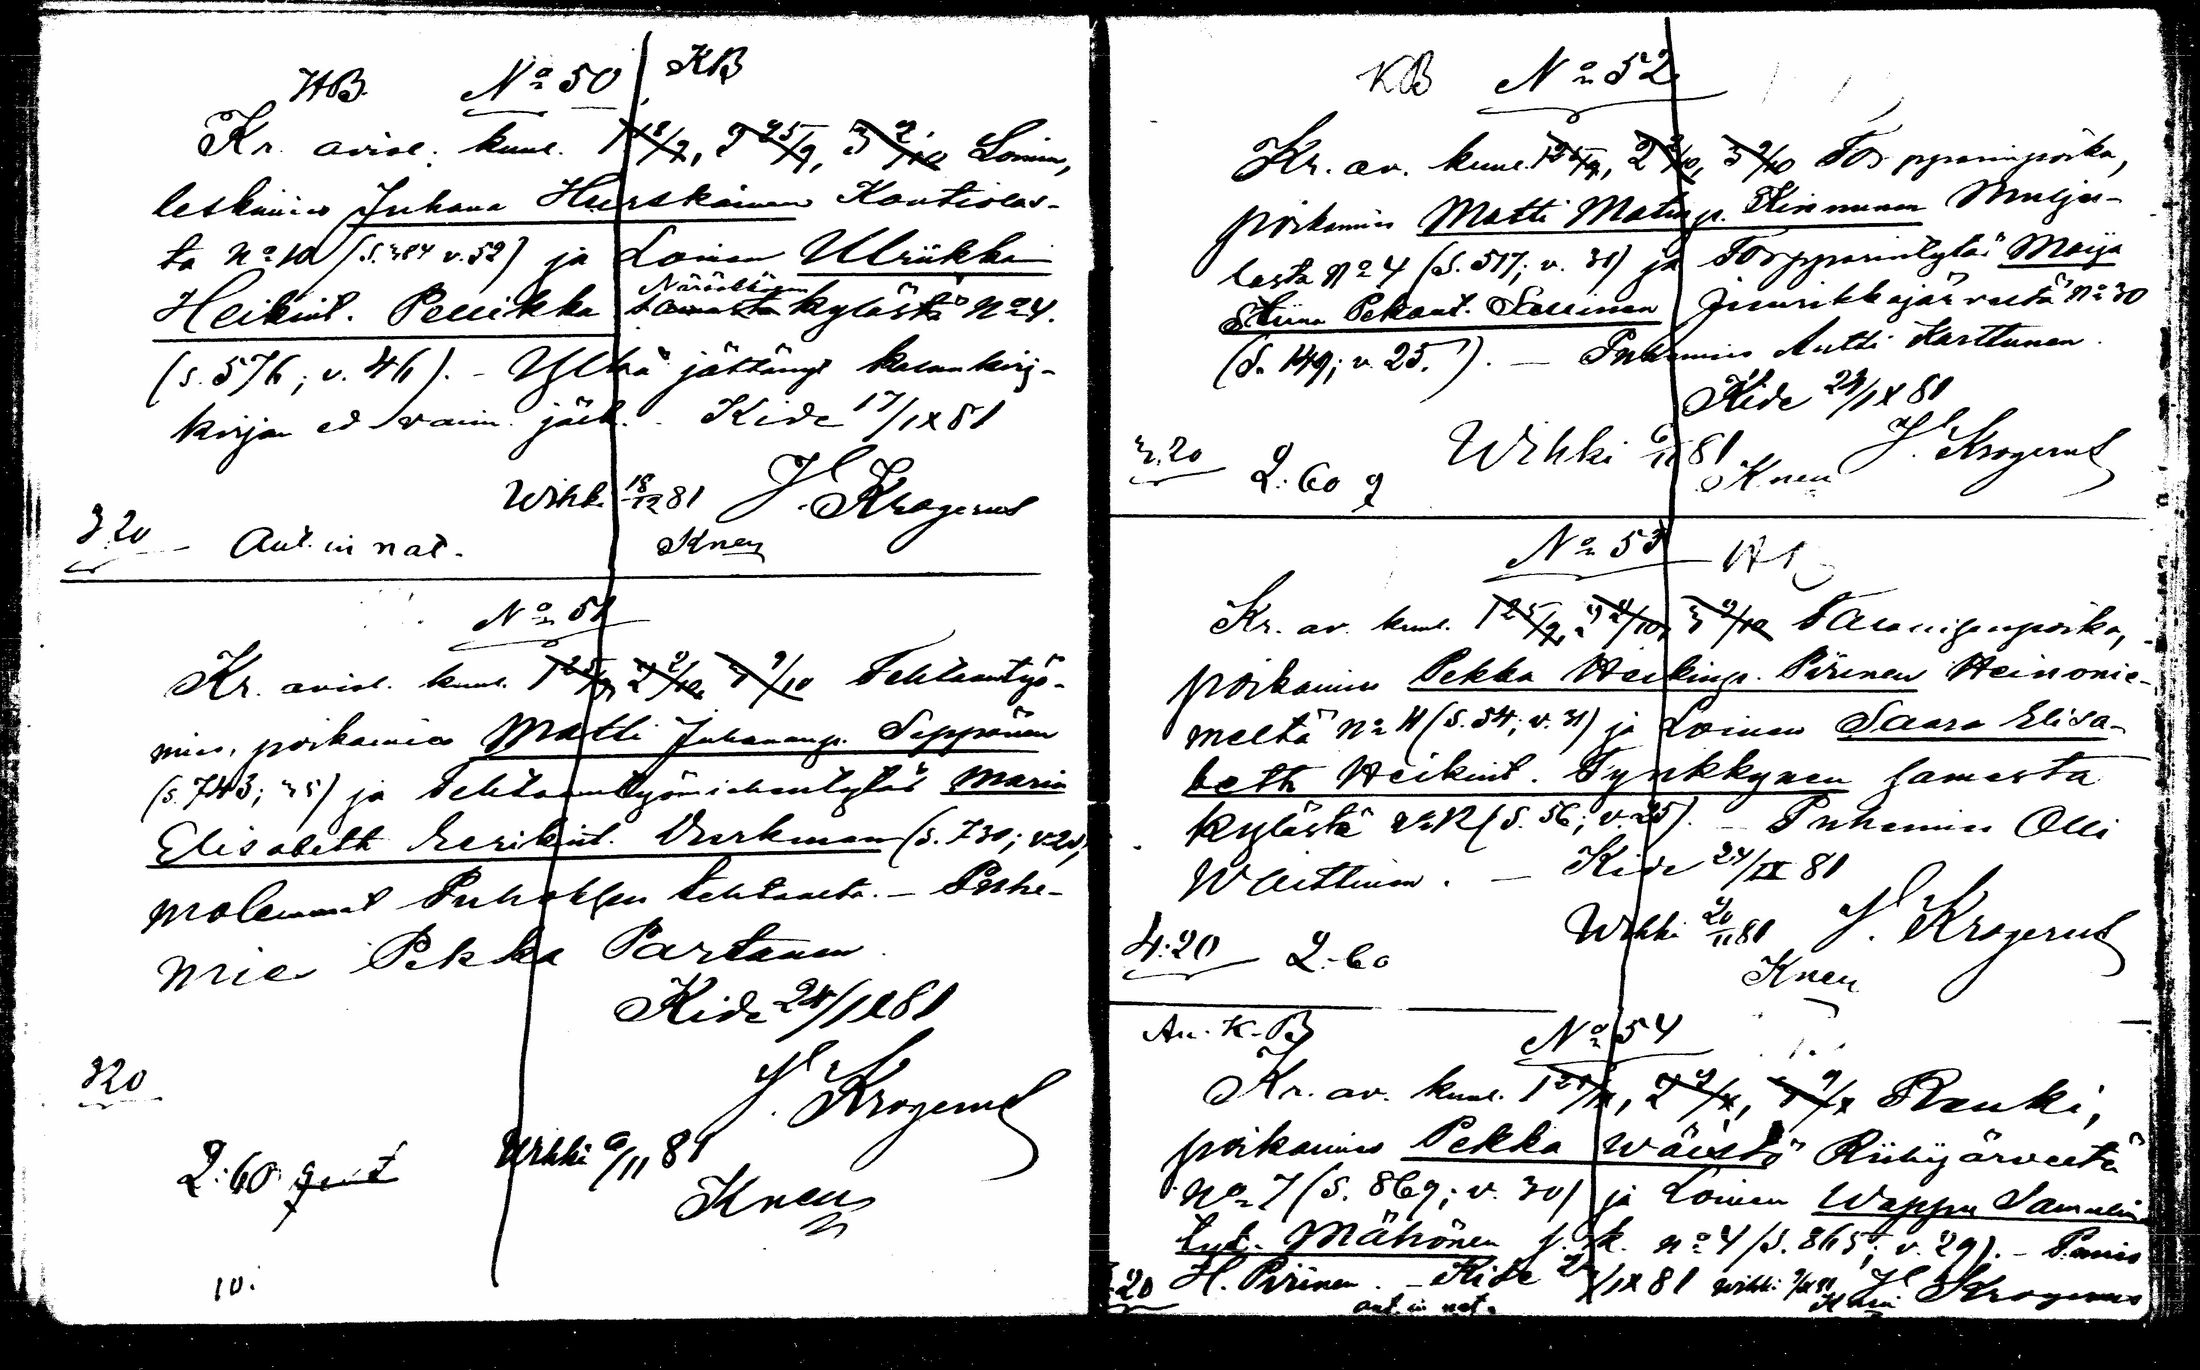 KB. No 50 KB
Kr. aviol. kuul. 1 18/9, 2 25/9, 3 2/10 Loinen,
leskimies Juhana Hurskainen Kontiolas-
ta No 10 (S. 384 v. 52) ja Loinen Ulriikka
Heikint. Pellikka samasta Närsäkkälän kylästä No 4.
(s. 576; v. 46). - Yllä jättänyt kalunkirj-
kirjan ed. vaim. jält. - Kide 17/IX 81
Wihk. 18/12 81 J. Krogerus
3 20 - Ant. in nat. Knen
No 51
Kr. aviol. kuul. 1 25/9, 2 2/10, 3 9/10 Tehtaantyö-
mies, poikamies Matti Juhananp. Sepponen
(s. 743; 35) ja tehtaantyömiehentytär Maria
Elisabeth Eerikint. Durkman (s. 730; v. 20),
molemmat Puhoksen tehtaalta. - Puhe-
mies Pekka Partanen
Kide 24/IX 81
3 20 J. Krogerus
2:60 Wihki 6/11 81
Knen
10.
KB No 52
Kr. av. kuul. 1 25/9, 2 2/10, 3 9/10 Torpparinpoika,
poikamies Matti Matinp. Kinnunen Mulju-
lasta No 4 (S. 517; v. 31) ja Torpparintytär Maija
Stiina Pekant. Sallinen Juurikkajärveltä No 30
(S. 149; v. 25.). - Puhemies Antti Karttunen.
Kide 24/IX 81
3.20 2:60 Wihki 6/11 81 J. Krogerus
Knen
No 53
Kr. av. kuul. 1 25/9, 2 2/10, 3 9/10 Talollisenpoika,
poikamies Pekka Heikinp. Piirinen Heinonie-
meltä No 11 (S. 54; v. 31) ja Loinen Saara Elisa-
beth Heikint. Tynkkynen samasta
kylästä No 12 (S. 56; v. 25). - Puhemies Olli
Waittinen. - Kide 24/IX 81
Wihki 20/11 81 J. Krogerus
4:20 2:60
Knen
An. K. B No 54
Kr. av. kuul. 1 25/IX, 2 2/X, 3 9/X Renki,
poikamies Pekka Wäistö Riihijärveltä
No 7 (S. 869; v. 30) ja Loinen Wappu Samulin
tyt. Mähönen s. k. No 4 (S. 865; v. 29). - P.mies
20 H. Piirinen. - Kide IX 81 Wihki J. Krogerus
ant. in nat. Knen